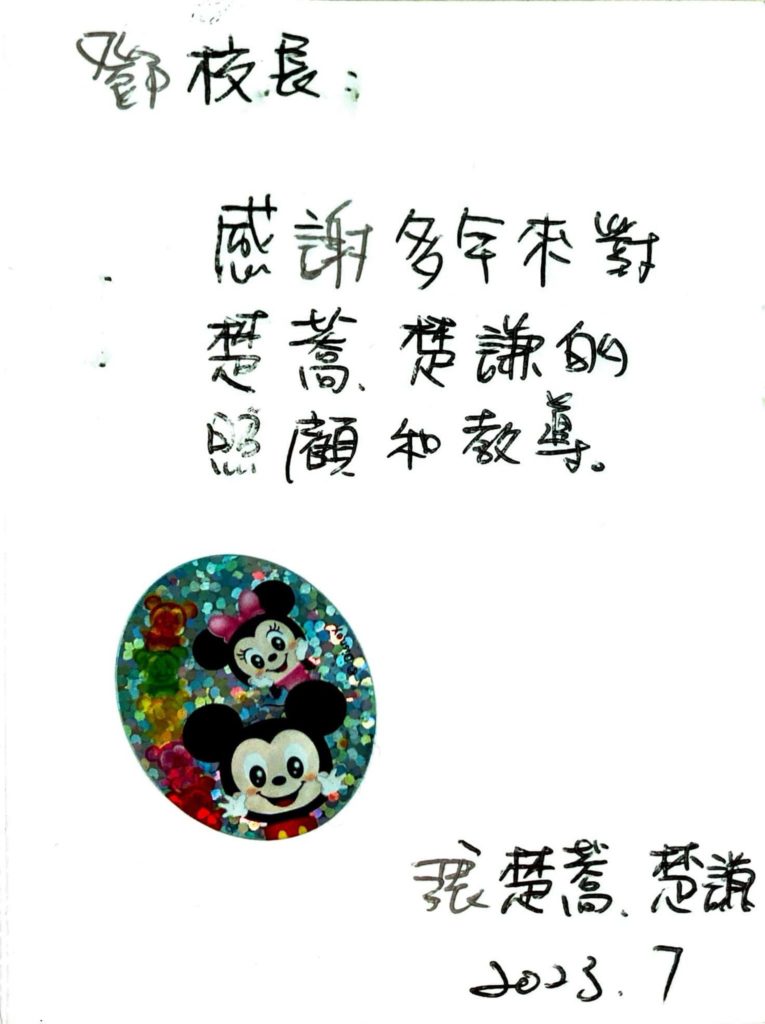 鄧校長：
感謝多年來對
楚蕎、楚謙的
照顧和教導。
張楚蕎、楚謙
2023.7